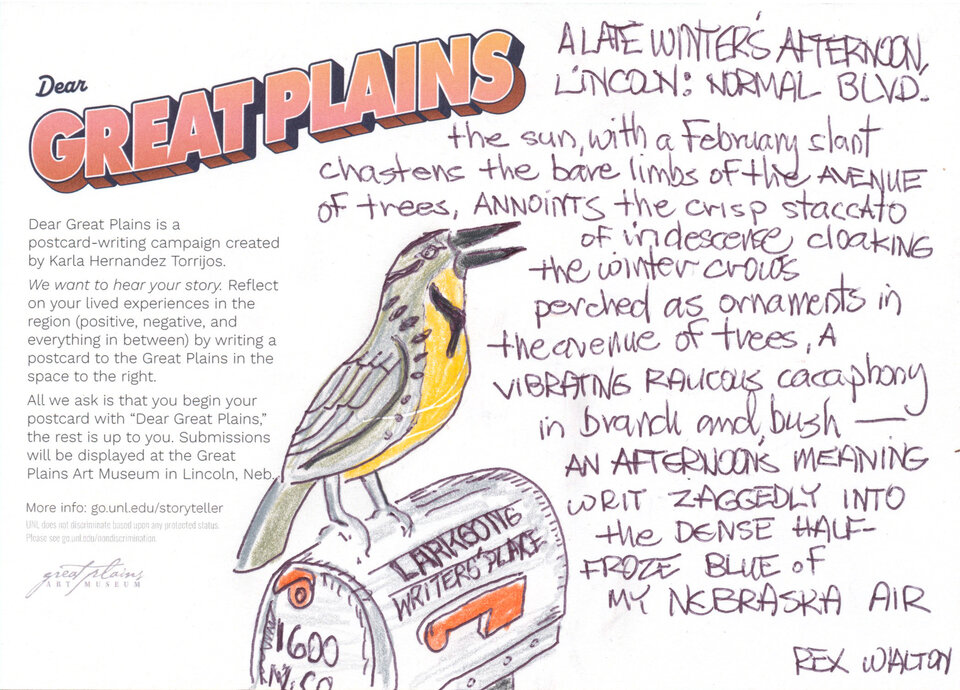 Dear
GREAT PLAINS
Dear Great Plains is a
postcard-writing campaign created
by Karla Hernandez Torrijos.
We want to hear your story. Reflect
on your lived experiences in the
region (positive, negative, and
everything in between) by writing a
postcard to the Great Plains in the
space to the right.
All we ask is that you begin your
postcard with “Dear Great Plains,”
the rest is up to you. Submissions
will be displayed at the Great
Plains Art Museum in Lincoln, Neb.
More info: go.unl.edu/storyteller
UNL does not discriminate based upon any protected status.
Please see go.unl.edu/nondiscrimination.
great plains
ART MUSEUM
A LATE WINTER'S AFTERNOON,
LINCOLN: NORMAL BLVD.
the sun, with a February slant
chastens the bare limbs of the AVENUE
of trees, ANNOINTS the crisp staccato
of iridescense cloaking
the winter crows
perched as ornaments in
the avenue of trees, A
VIBRATING RAUCOUS cacaphony
in branch and bush —
AN AFTERNOON'S MEANING
WRIT ZAGGEDLY INTO
the DENSE HALF-
FROZE BLUE of
MY NEBRASKA AIR
REX WALTON
LARKSONG
WRITERS' PLACE
1600